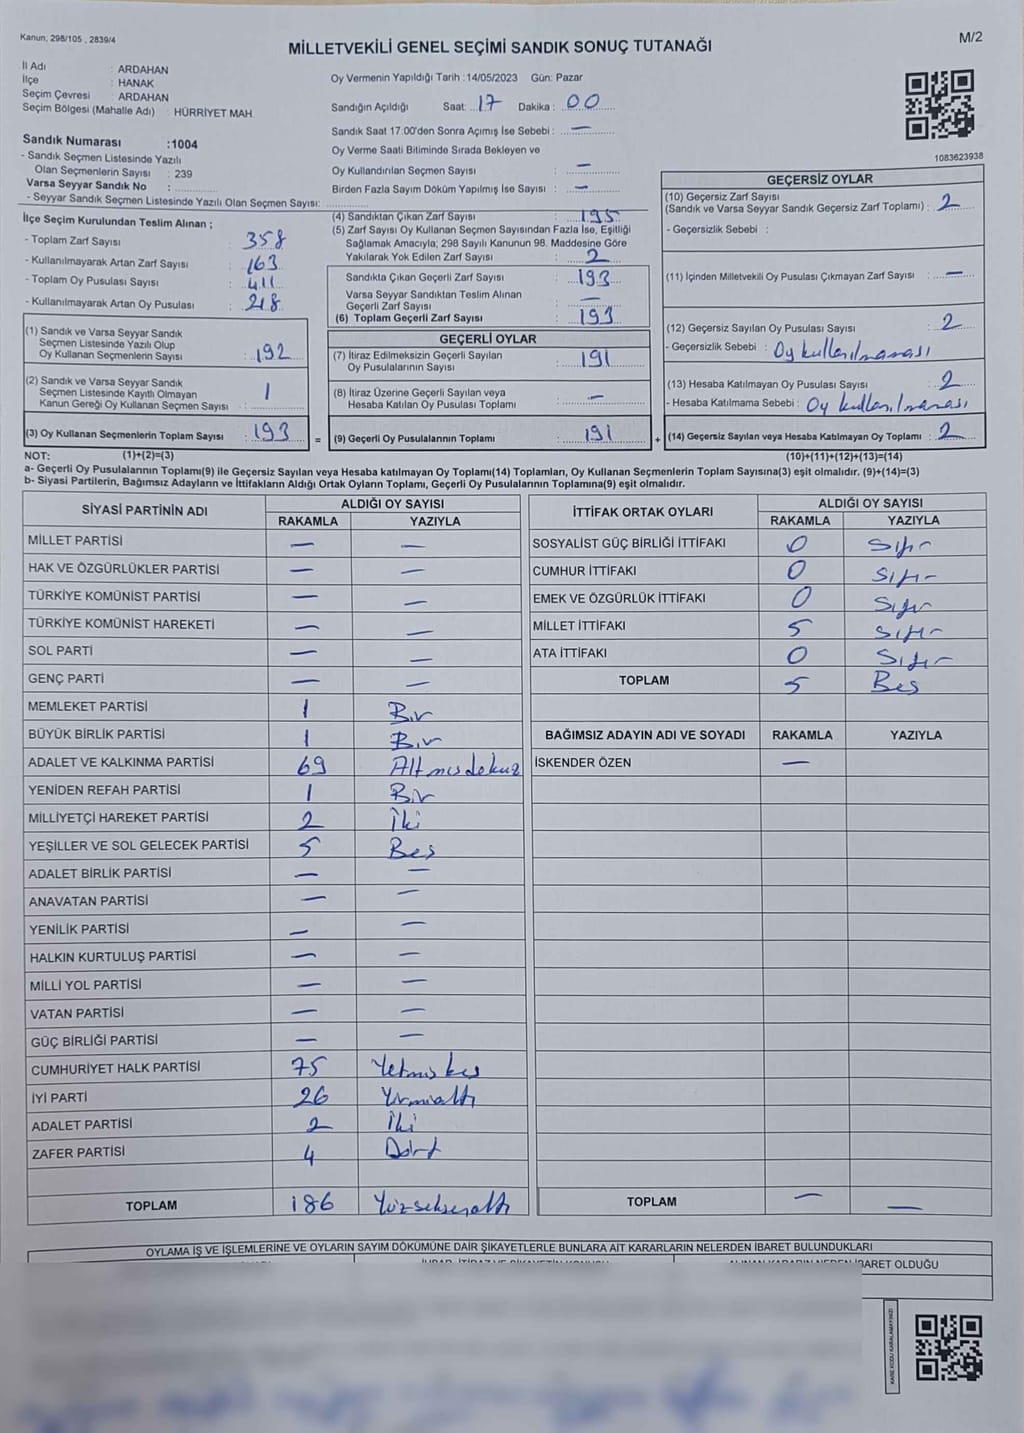 Kanun; 298/105 , 2839/4
M/2
MİLLETVEKİLİ GENEL SEÇİMİ SANDIK SONUÇ TUTANAĞI
İl Adı : ARDAHAN
İlçe : HANAK
Seçim Çevresi : ARDAHAN
Seçim Bölgesi (Mahalle Adı) : HÜRRİYET MAH.
Sandık Numarası :1004
- Sandık Seçmen Listesinde Yazılı
Olan Seçmenlerin Sayısı : 239
Varsa Seyyar Sandık No :
- Seyyar Sandık Seçmen Listesinde Yazılı Olan Seçmen Sayısı:
Oy Vermenin Yapıldığı Tarih :14/05/2023 Gün: Pazar
Sandığın Açıldığı Saat: 17 Dakika : 00
Sandık Saat 17:00'den Sonra Açılmış İse Sebebi : —
Oy Verme Saati Bitiminde Sırada Bekleyen ve
Oy Kullandırılan Seçmen Sayısı —
Birden Fazla Sayım Döküm Yapılmış İse Sayısı : —
1083623938
İlçe Seçim Kurulundan Teslim Alınan ;
- Toplam Zarf Sayısı : 358
- Kullanılmayarak Artan Zarf Sayısı : 163
- Toplam Oy Pusulası Sayısı : 411
- Kullanılmayarak Artan Oy Pusulası : 218
(1) Sandık ve Varsa Seyyar Sandık
Seçmen Listesinde Yazılı Olup
Oy Kullanan Seçmenlerin Sayısı : 192
(2) Sandık ve Varsa Seyyar Sandık
Seçmen Listesinde Kayıtlı Olmayan
Kanun Gereği Oy Kullanan Seçmen Sayısı : 1
(3) Oy Kullanan Seçmenlerin Toplam Sayısı : 193
(4) Sandıktan Çıkan Zarf Sayısı : 195
(5) Zarf Sayısı Oy Kullanan Seçmen Sayısından Fazla İse, Eşitliği
Sağlamak Amacıyla; 298 Sayılı Kanunun 98. Maddesine Göre
Yakılarak Yok Edilen Zarf Sayısı : 2
Sandıkta Çıkan Geçerli Zarf Sayısı : 193
Varsa Seyyar Sandıktan Teslim Alınan
Geçerli Zarf Sayısı : —
(6) Toplam Geçerli Zarf Sayısı : 193
GEÇERLİ OYLAR
(7) İtiraz Edilmeksizin Geçerli Sayılan
Oy Pusulalarının Sayısı : 191
(8) İtiraz Üzerine Geçerli Sayılan veya
Hesaba Katılan Oy Pusulası Toplamı : —
= (9) Geçerli Oy Pusulalarının Toplamı : 191
GEÇERSİZ OYLAR
(10) Geçersiz Zarf Sayısı
(Sandık ve Varsa Seyyar Sandık Geçersiz Zarf Toplamı) : 2
- Geçersizlik Sebebi :
(11) İçinden Milletvekili Oy Pusulası Çıkmayan Zarf Sayısı : —
(12) Geçersiz Sayılan Oy Pusulası Sayısı : 2
- Geçersizlik Sebebi : Oy kullanılmaması
(13) Hesaba Katılmayan Oy Pusulası Sayısı : 2
- Hesaba Katılmama Sebebi : Oy kullanılmaması
+ (14) Geçersiz Sayılan veya Hesaba Katılmayan Oy Toplamı : 2
NOT: (1)+(2)=(3)
(10)+(11)+(12)+(13)=(14)
a- Geçerli Oy Pusulalarının Toplamı(9) ile Geçersiz Sayılan veya Hesaba katılmayan Oy Toplamı(14) Toplamları, Oy Kullanan Seçmenlerin Toplam Sayısına(3) eşit olmalıdır. (9)+(14)=(3)
b- Siyasi Partilerin, Bağımsız Adayların ve İttifakların Aldığı Ortak Oyların Toplamı, Geçerli Oy Pusulalarının Toplamına(9) eşit olmalıdır.
SİYASİ PARTİNİN ADI ALDIĞI OY SAYISI
RAKAMLA YAZIYLA
MİLLET PARTİSİ — —
HAK VE ÖZGÜRLÜKLER PARTİSİ — —
TÜRKİYE KOMÜNİST PARTİSİ — —
TÜRKİYE KOMÜNİST HAREKETİ — —
SOL PARTİ — —
GENÇ PARTİ — —
MEMLEKET PARTİSİ 1 Bir
BÜYÜK BİRLİK PARTİSİ 1 Bir
ADALET VE KALKINMA PARTİSİ 69 Altmışdokuz
YENİDEN REFAH PARTİSİ 1 Bir
MİLLİYETÇİ HAREKET PARTİSİ 2 İki
YEŞİLLER VE SOL GELECEK PARTİSİ 5 Beş
ADALET BİRLİK PARTİSİ — —
ANAVATAN PARTİSİ — —
YENİLİK PARTİSİ — —
HALKIN KURTULUŞ PARTİSİ — —
MİLLİ YOL PARTİSİ — —
VATAN PARTİSİ — —
GÜÇ BİRLİĞİ PARTİSİ — —
CUMHURİYET HALK PARTİSİ 75 Yetmişbeş
İYİ PARTİ 26 Yirmialtı
ADALET PARTİSİ 2 İki
ZAFER PARTİSİ 4 Dört
TOPLAM 186 Yüzseksenaltı
İTTİFAK ORTAK OYLARI ALDIĞI OY SAYISI
RAKAMLA YAZIYLA
SOSYALİST GÜÇ BİRLİĞİ İTTİFAKI 0 Sıfır
CUMHUR İTTİFAKI 0 Sıfır
EMEK VE ÖZGÜRLÜK İTTİFAKI 0 Sıfır
MİLLET İTTİFAKI 5 Sıfır
ATA İTTİFAKI 0 Sıfır
TOPLAM 5 Beş
BAĞIMSIZ ADAYIN ADI VE SOYADI RAKAMLA YAZIYLA
İSKENDER ÖZEN —
TOPLAM — —
OYLAMA İŞ VE İŞLEMLERİNE VE OYLARIN SAYIM DÖKÜMÜNE DAİR ŞİKAYETLERLE BUNLARA AİT KARARLARIN NELERDEN İBARET BULUNDUKLARI
İBARET OLDUĞU
KARE KODU KARALAMAYINIZ!